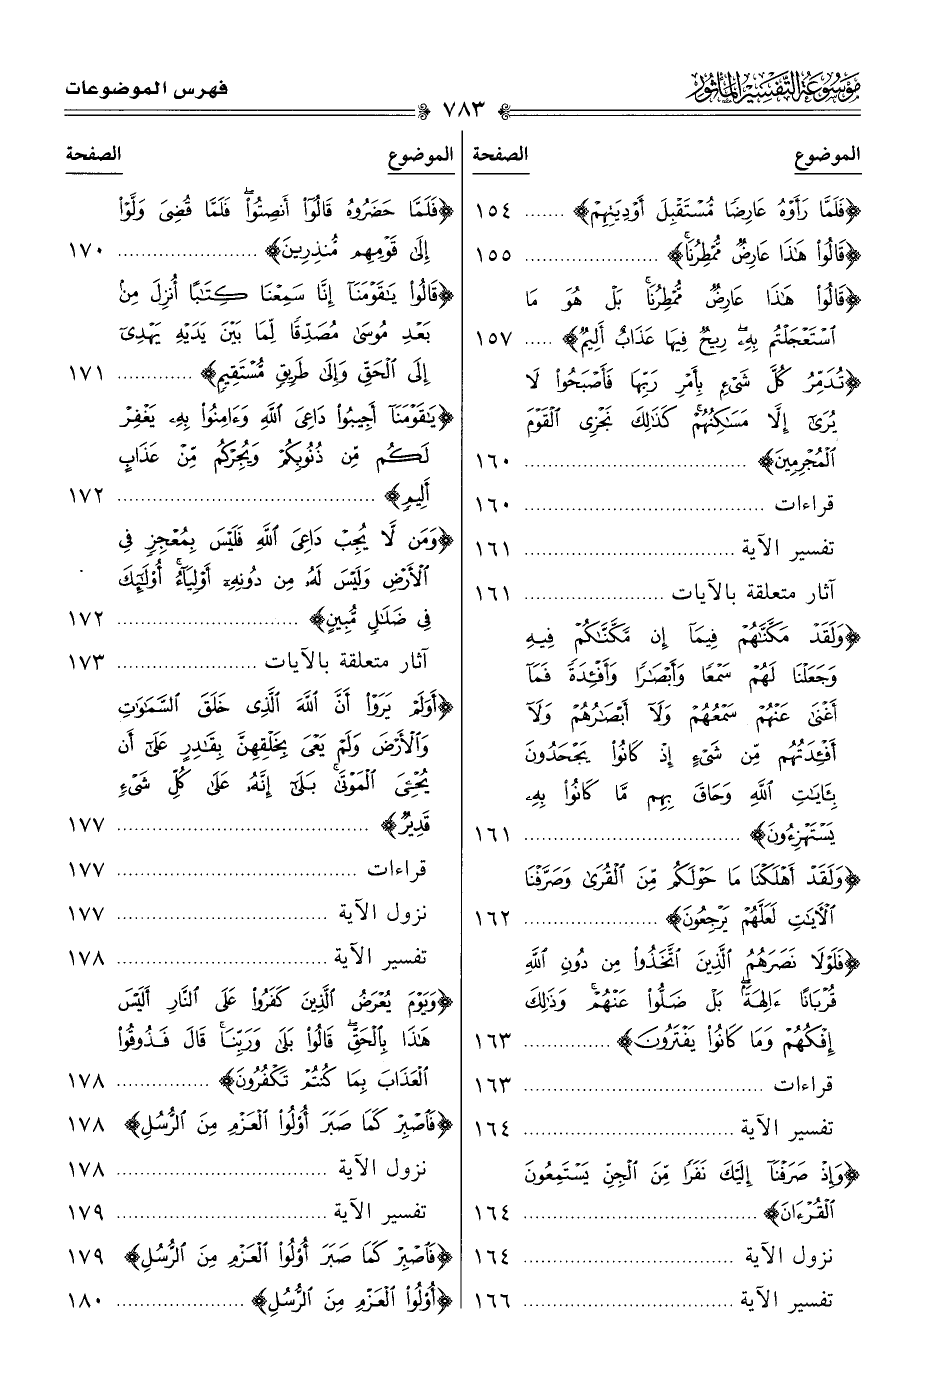 موسوعة التفسير المأثور
فهرس الموضوعات
٧٨٣
الموضوع الصفحة
﴿فَلَمَّا رَأَوْهُ عَارِضًا مُّسْتَقْبِلَ أَوْدِيَتِهِمْ﴾ ....... ١٥٤
﴿قَالُوا۟ هَٰذَا عَارِضٌ مُّمْطِرُنَاۚ﴾ ....................... ١٥٥
﴿قَالُوا۟ هَٰذَا عَارِضٌ مُّمْطِرُنَاۚ بَلْ هُوَ مَا
ٱسْتَعْجَلْتُم بِهِۦۖ رِيحٌ فِيهَا عَذَابٌ أَلِيمٌ﴾ ..... ١٥٧
﴿تُدَمِّرُ كُلَّ شَىْءٍ بِأَمْرِ رَبِّهَا فَأَصْبَحُوا۟ لَا
يُرَىٰٓ إِلَّا مَسَٰكِنُهُمْۚ كَذَٰلِكَ نَجْزِى ٱلْقَوْمَ
ٱلْمُجْرِمِينَ﴾ ...................................... ١٦٠
قراءات ......................................... ١٦٠
تفسير الآية .................................... ١٦١
آثار متعلقة بالآيات ........................ ١٦١
﴿وَلَقَدْ مَكَّنَّٰهُمْ فِيمَآ إِن مَّكَّنَّٰكُمْ فِيهِ
وَجَعَلْنَا لَهُمْ سَمْعًا وَأَبْصَٰرًا وَأَفْـِٔدَةً فَمَآ
أَغْنَىٰ عَنْهُمْ سَمْعُهُمْ وَلَآ أَبْصَٰرُهُمْ وَلَآ
أَفْـِٔدَتُهُم مِّن شَىْءٍ إِذْ كَانُوا۟ يَجْحَدُونَ
بِـَٔايَٰتِ ٱللَّهِ وَحَاقَ بِهِم مَّا كَانُوا۟ بِهِۦ
يَسْتَهْزِءُونَ﴾ ..................................... ١٦١
﴿وَلَقَدْ أَهْلَكْنَا مَا حَوْلَكُم مِّنَ ٱلْقُرَىٰ وَصَرَّفْنَا
ٱلْـَٔايَٰتِ لَعَلَّهُمْ يَرْجِعُونَ﴾ ....................... ١٦٢
﴿فَلَوْلَا نَصَرَهُمُ ٱلَّذِينَ ٱتَّخَذُوا۟ مِن دُونِ ٱللَّهِ
قُرْبَانًا ءَالِهَةًۢۖ بَلْ ضَلُّوا۟ عَنْهُمْۚ وَذَٰلِكَ
إِفْكُهُمْ وَمَا كَانُوا۟ يَفْتَرُونَ﴾ ............... ١٦٣
قراءات ......................................... ١٦٣
تفسير الآية .................................... ١٦٤
﴿وَإِذْ صَرَفْنَآ إِلَيْكَ نَفَرًا مِّنَ ٱلْجِنِّ يَسْتَمِعُونَ
ٱلْقُرْءَانَ﴾ ........................................ ١٦٤
نزول الآية .................................... ١٦٤
تفسير الآية .................................... ١٦٦
الموضوع الصفحة
﴿فَلَمَّا حَضَرُوهُ قَالُوٓا۟ أَنصِتُوا۟ۖ فَلَمَّا قُضِىَ وَلَّوْا۟
إِلَىٰ قَوْمِهِم مُّنذِرِينَ﴾ ........................ ١٧٠
﴿قَالُوا۟ يَٰقَوْمَنَآ إِنَّا سَمِعْنَا كِتَٰبًا أُنزِلَ مِنۢ
بَعْدِ مُوسَىٰ مُصَدِّقًا لِّمَا بَيْنَ يَدَيْهِ يَهْدِىٓ
إِلَى ٱلْحَقِّ وَإِلَىٰ طَرِيقٍ مُّسْتَقِيمٍ﴾ ............. ١٧١
﴿يَٰقَوْمَنَآ أَجِيبُوا۟ دَاعِىَ ٱللَّهِ وَءَامِنُوا۟ بِهِۦ يَغْفِرْ
لَكُم مِّن ذُنُوبِكُمْ وَيُجِرْكُم مِّنْ عَذَابٍ
أَلِيمٍ﴾ ............................................ ١٧٢
﴿وَمَن لَّا يُجِبْ دَاعِىَ ٱللَّهِ فَلَيْسَ بِمُعْجِزٍ فِى
ٱلْأَرْضِ وَلَيْسَ لَهُۥ مِن دُونِهِۦٓ أَوْلِيَآءُۚ أُو۟لَٰٓئِكَ
فِى ضَلَٰلٍ مُّبِينٍ﴾ ............................... ١٧٢
آثار متعلقة بالآيات ........................ ١٧٣
﴿أَوَلَمْ يَرَوْا۟ أَنَّ ٱللَّهَ ٱلَّذِى خَلَقَ ٱلسَّمَٰوَٰتِ
وَٱلْأَرْضَ وَلَمْ يَعْىَ بِخَلْقِهِنَّ بِقَٰدِرٍ عَلَىٰٓ أَن
يُحْـِۧىَ ٱلْمَوْتَىٰۚ بَلَىٰٓ إِنَّهُۥ عَلَىٰ كُلِّ شَىْءٍ
قَدِيرٌ﴾ ........................................... ١٧٧
قراءات ......................................... ١٧٧
نزول الآية .................................... ١٧٧
تفسير الآية .................................... ١٧٨
﴿وَيَوْمَ يُعْرَضُ ٱلَّذِينَ كَفَرُوا۟ عَلَى ٱلنَّارِ أَلَيْسَ
هَٰذَا بِٱلْحَقِّۖ قَالُوا۟ بَلَىٰ وَرَبِّنَاۚ قَالَ فَذُوقُوا۟
ٱلْعَذَابَ بِمَا كُنتُمْ تَكْفُرُونَ﴾ ................ ١٧٨
﴿فَٱصْبِرْ كَمَا صَبَرَ أُو۟لُوا۟ ٱلْعَزْمِ مِنَ ٱلرُّسُلِ﴾ ١٧٨
نزول الآية .................................... ١٧٨
تفسير الآية .................................... ١٧٩
﴿فَٱصْبِرْ كَمَا صَبَرَ أُو۟لُوا۟ ٱلْعَزْمِ مِنَ ٱلرُّسُلِ﴾ ١٧٩
﴿أُو۟لُوا۟ ٱلْعَزْمِ مِنَ ٱلرُّسُلِ﴾ ...................... ١٨٠